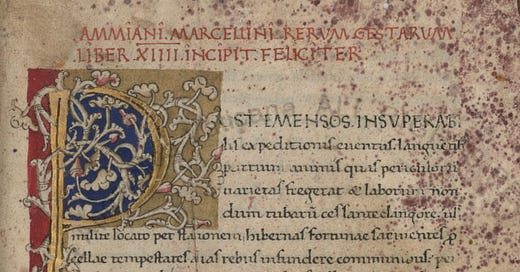 AMMIANI. MARCELLINI RERUM GESTARUM
LIBER XIIII. INCIPIT. FELICITER
POST EMENSOS. INSUPERABI
lis expeditionis euentus. languentib
partium animis quas periculorũ
uarietas fregerat & laborum non
dum tubarũ cessante clangore. uł
milite locato per stationes hibernas fortunae saeuientes ꝓ
cellae tempestates alias rebus infudere communibus: per